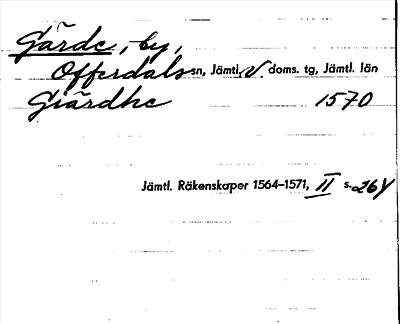 Gärde, by,
Offerdals sn, Jämtl. V. doms. tg, Jämtl. län
Giärdhe 1570
Jämtl. Räkenskaper 1564-1571, II s. 264